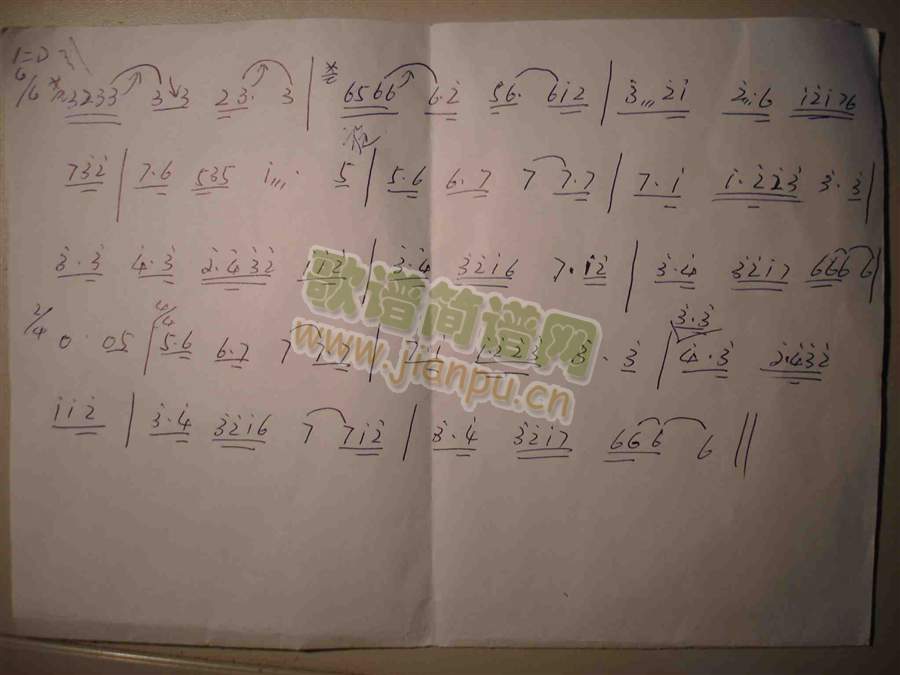 1=D
4/4 3233 3 3 23. 3 | 6566 6.2̇ 56. 6i̇2̇ | 3̇ 2̇i̇ 2̇.6 i̇2̇i̇76
73̇2̇ | 7.6 535 i̇ 5 | 5.6 6.7 7 7.7 | 7.i̇ i̇.2̇2̇3̇ 3̇.3̇ |
3̇.3̇ 4̇.3̇ 2̇.4̇3̇2̇ i̇i̇2̇ | 3̇.4̇ 3̇2̇i̇6 7.i̇2̇ | 3̇.4̇ 3̇2̇i̇7 666 6 |
2/4 0.05 | 4/4 5.6 6.7 7 7.7 | 7.i̇ i̇.2̇2̇3̇ 3̇.3̇ | 3̇.3̇ 4̇.3̇ 2̇.4̇3̇2̇
i̇i̇2̇ | 3̇.4̇ 3̇2̇i̇6 7 7i̇2̇ | 3̇.4̇ 3̇2̇i̇7 666 6 ||
歌谱简谱网
www.jianpu.cn